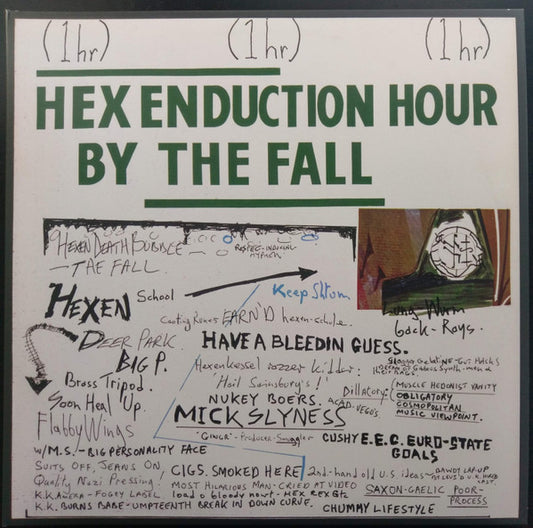 (1hr) (1hr) (1hr)
HEX ENDUCTION HOUR
BY THE FALL
HEXEN DEATH BUBBLE
— THE FALL.
HEXEN School
Keep Shtum
Casting Runes EARN'D hexen-schule.
Lung Wurm
Gack-Rays.
DEER PARK.
HAVE A BLEEDIN GUESS.
BIG P.
Hexenkessel rozzer kidder:
Brass Tripod.
'Hail Sainsbury's!'
Dillatory:
MUSCLE HEDONIST VANITY
OBLIGATORY
COSMOPOLITAN
MUSIC VIEWPOINT.
Soon Heal Up
NUKEY BOERS.
ACAD-VEGOS
Flabby Wings
MICK SLYNESS
"GINGR" - Producer-Smuggler
CUSHY E.E.C. EURO-STATE
GOALS
W/M.S. - BIG PERSONALITY FACE
SUITS OFF, JEANS ON,
CIGS. SMOKED HERE
2nd-hand old U.S. ideas
Quality Nazi Pressing
MOST HILARIOUS MAN - CRIED AT VIDEO
SAXON-GAELIC POOR-
PROCESS
K.KAMERA - FOGEY LABEL
HEX REX Gtz
K.K. BURNS BABE - UMPTEENTH BREAK IN DOWN CURVE.
CHUMMY LIFESTYLE